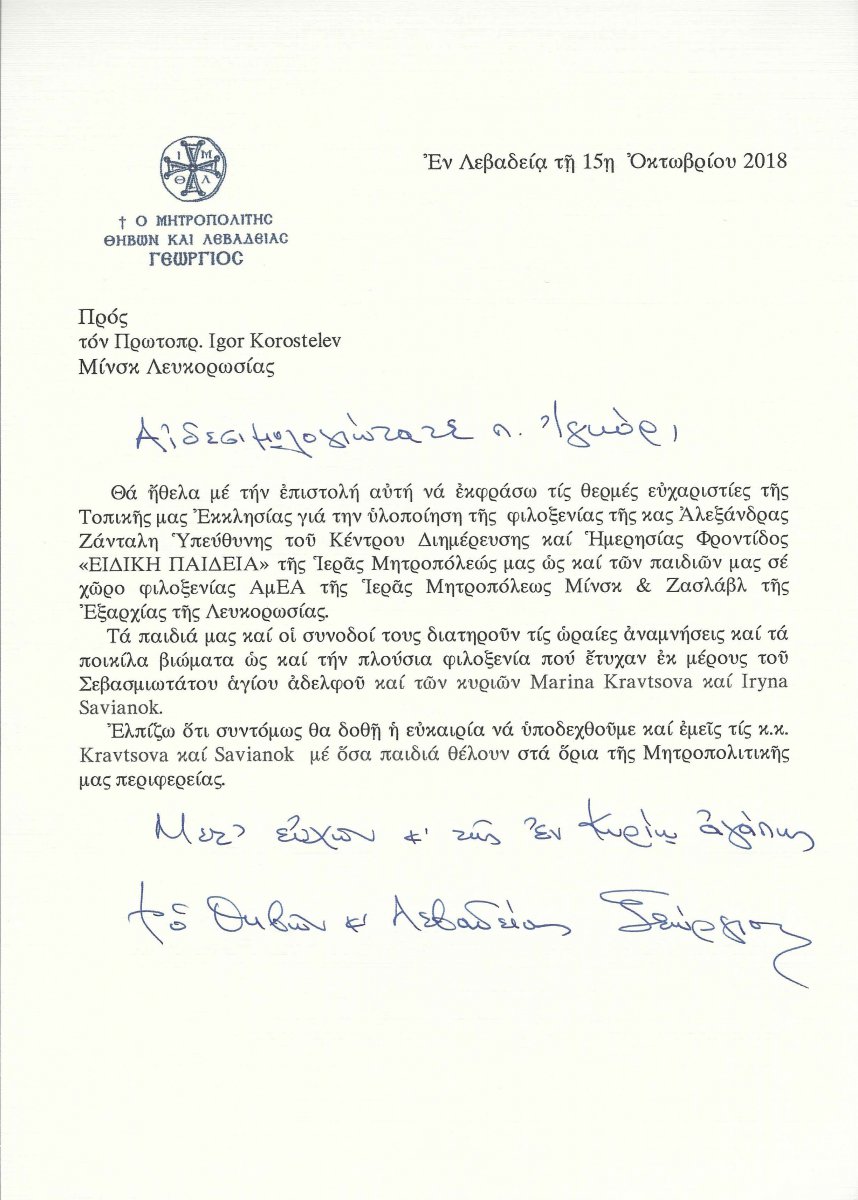 Ἐν Λεβαδείᾳ τῇ 15η Ὀκτωβρίου 2018
Ι Μ
Θ Λ
† Ο ΜΗΤΡΟΠΟΛΙΤΗΣ
ΘΗΒΩΝ ΚΑΙ ΛΕΒΑΔΕΙΑΣ
ΓΕΩΡΓΙΟΣ
Πρός
τόν Πρωτοπρ. Igor Korostelev
Μίνσκ Λευκορωσίας
Αἰδεσιμολογιώτατε π. Ἴγκορ,
Θά ἤθελα μέ τήν ἐπιστολή αὐτή νά ἐκφράσω τίς θερμές εὐχαριστίες τῆς
Τοπικῆς μας Ἐκκλησίας γιά την ὑλοποίηση τῆς φιλοξενίας τῆς κας Ἀλεξάνδρας
Ζάνταλη Ὑπεύθυνης τοῦ Κέντρου Διημέρευσης καί Ἡμερησίας Φροντίδος
«ΕΙΔΙΚΗ ΠΑΙΔΕΙΑ» τῆς Ἱερᾶς Μητροπόλεώς μας ὡς καί τῶν παιδιῶν μας σέ
χῶρο φιλοξενίας ΑμΕΑ τῆς Ἱερᾶς Μητροπόλεως Μίνσκ & Ζασλάβλ τῆς
Ἐξαρχίας τῆς Λευκορωσίας.
Τά παιδιά μας καί οἱ συνοδοί τους διατηροῦν τίς ὡραίες ἀναμνήσεις καί τά
ποικίλα βιώματα ὡς καί τήν πλούσια φιλοξενία πού ἔτυχαν ἐκ μέρους τοῦ
Σεβασμιωτάτου ἁγίου ἀδελφοῦ καί τῶν κυριῶν Marina Kravtsova καί Iryna
Savianok.
Ἐλπίζω ὅτι συντόμως θα δοθῆ ἡ εὐκαιρία νά ὑποδεχθοῦμε καί ἐμεῖς τίς κ.κ.
Kravtsova καί Savianok μέ ὅσα παιδιά θέλουν στά ὅρια τῆς Μητροπολιτικῆς
μας περιφερείας.
Μετ' εὐχῶν κ' τῆς ἐν Κυρίῳ ἀγάπης
† ὁ Θηβῶν κ' Λεβαδείας Γεώργιος